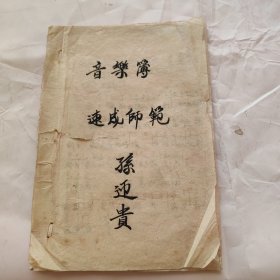 音樂簿
速成師範
孫迎貴